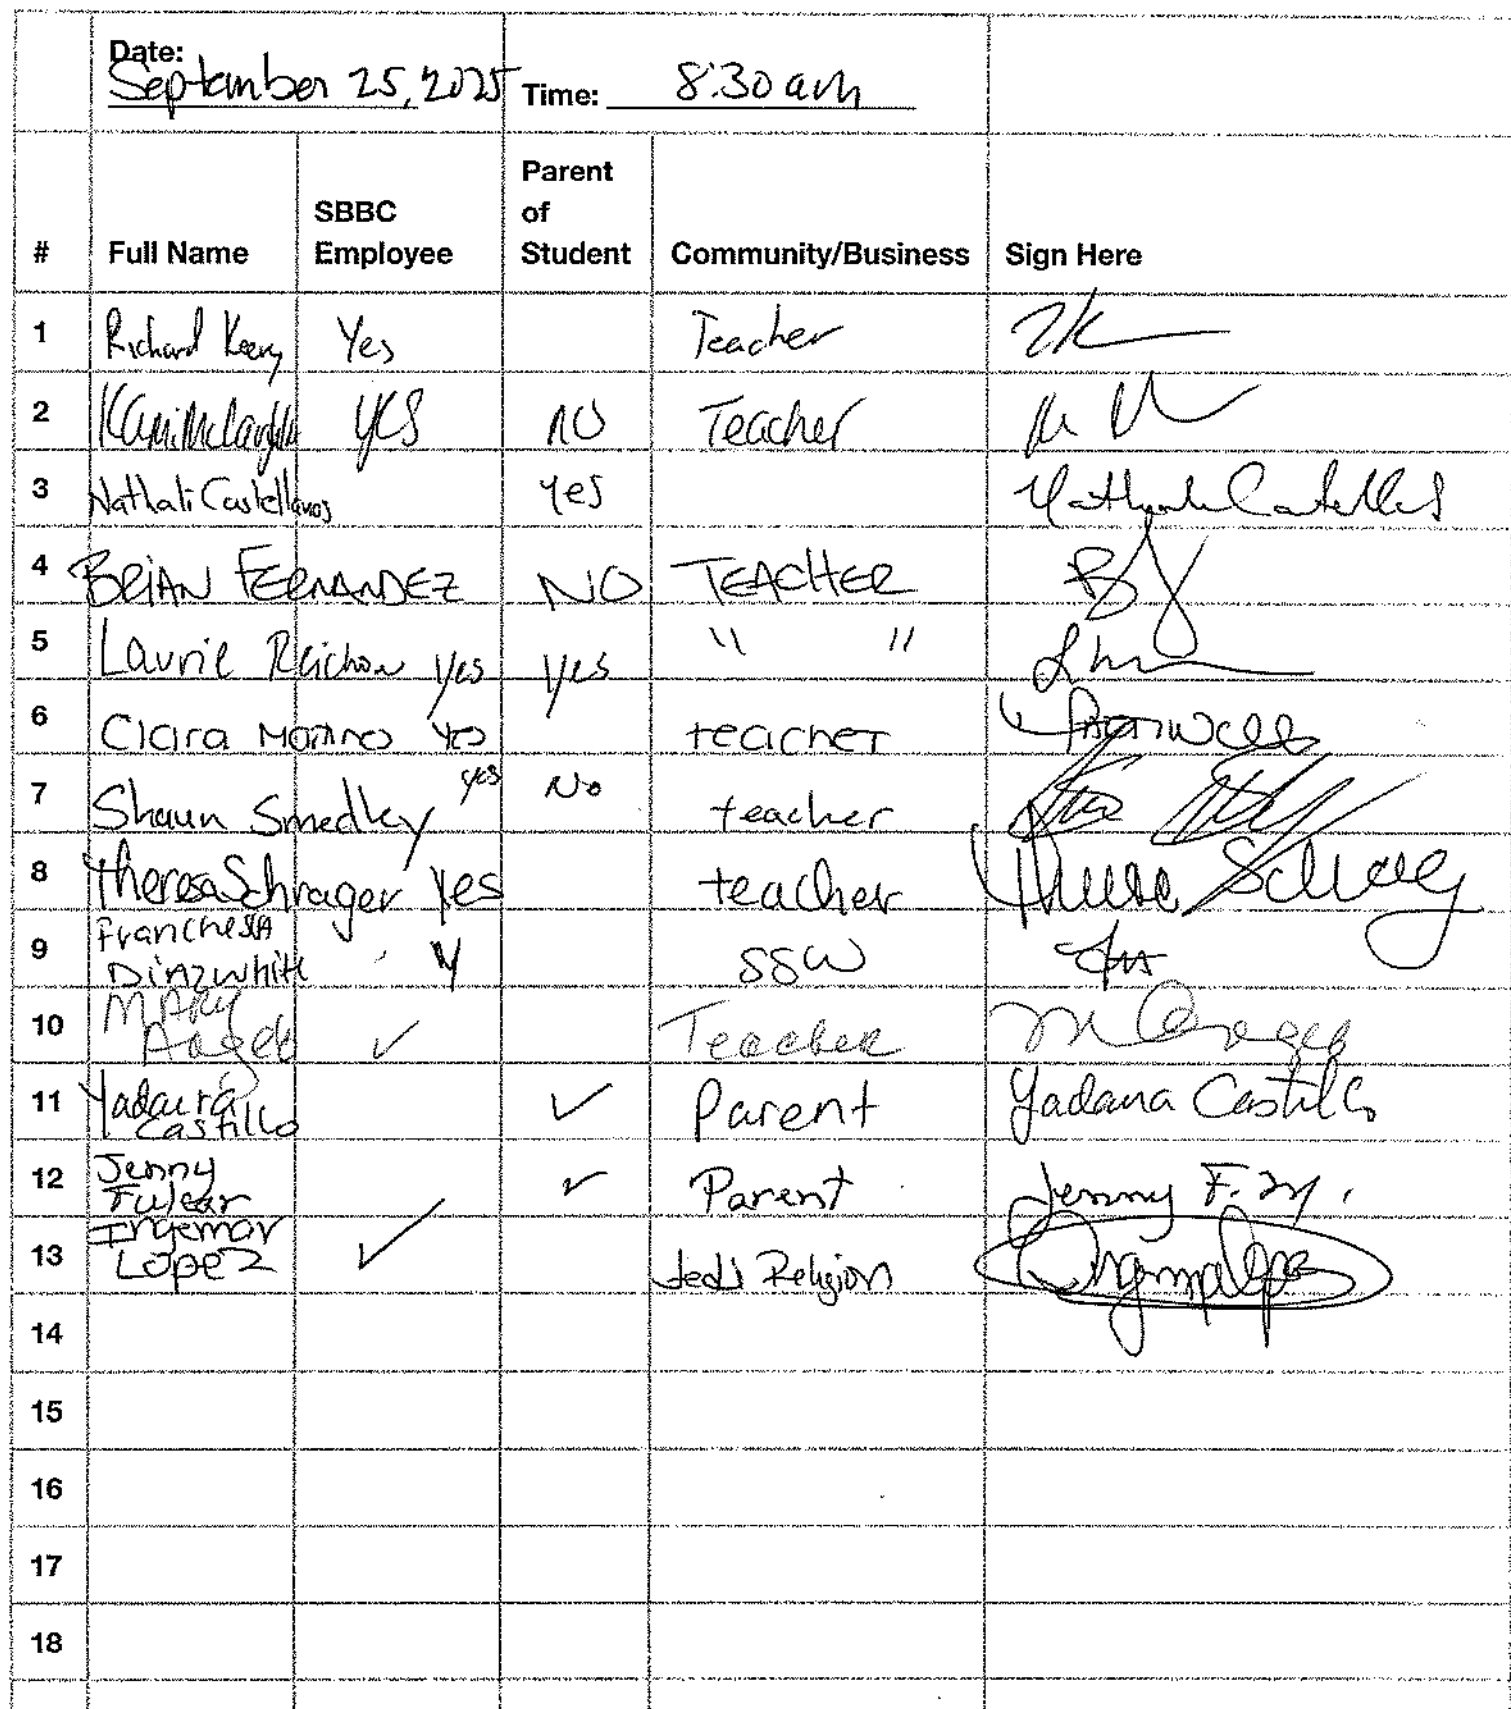 Date: September 25, 2025 Time: 8:30 am
# Full Name SBBC Employee Parent of Student Community/Business Sign Here
1 Richard Keery Yes Teacher
2 Kami McLaughlin yes NO Teacher
3 Nathali Castellanos yes
4 BRIAN FERNANDEZ NO TEACHER
5 Laurie yes yes " "
6 Clara yes teacher
7 Shaun Smedley yes No teacher
8 Theresa Schrager Yes teacher
9 Franchessa Diazwhite Y SSW
10 MARY ✓ Teacher
11 Yadaira Castillo ✓ Parent Yadaira Castillo
12 Jenny ✓ Parent Jenny F. M.
13 Ingemar Lopez ✓ Jedi Religion
14
15
16
17
18